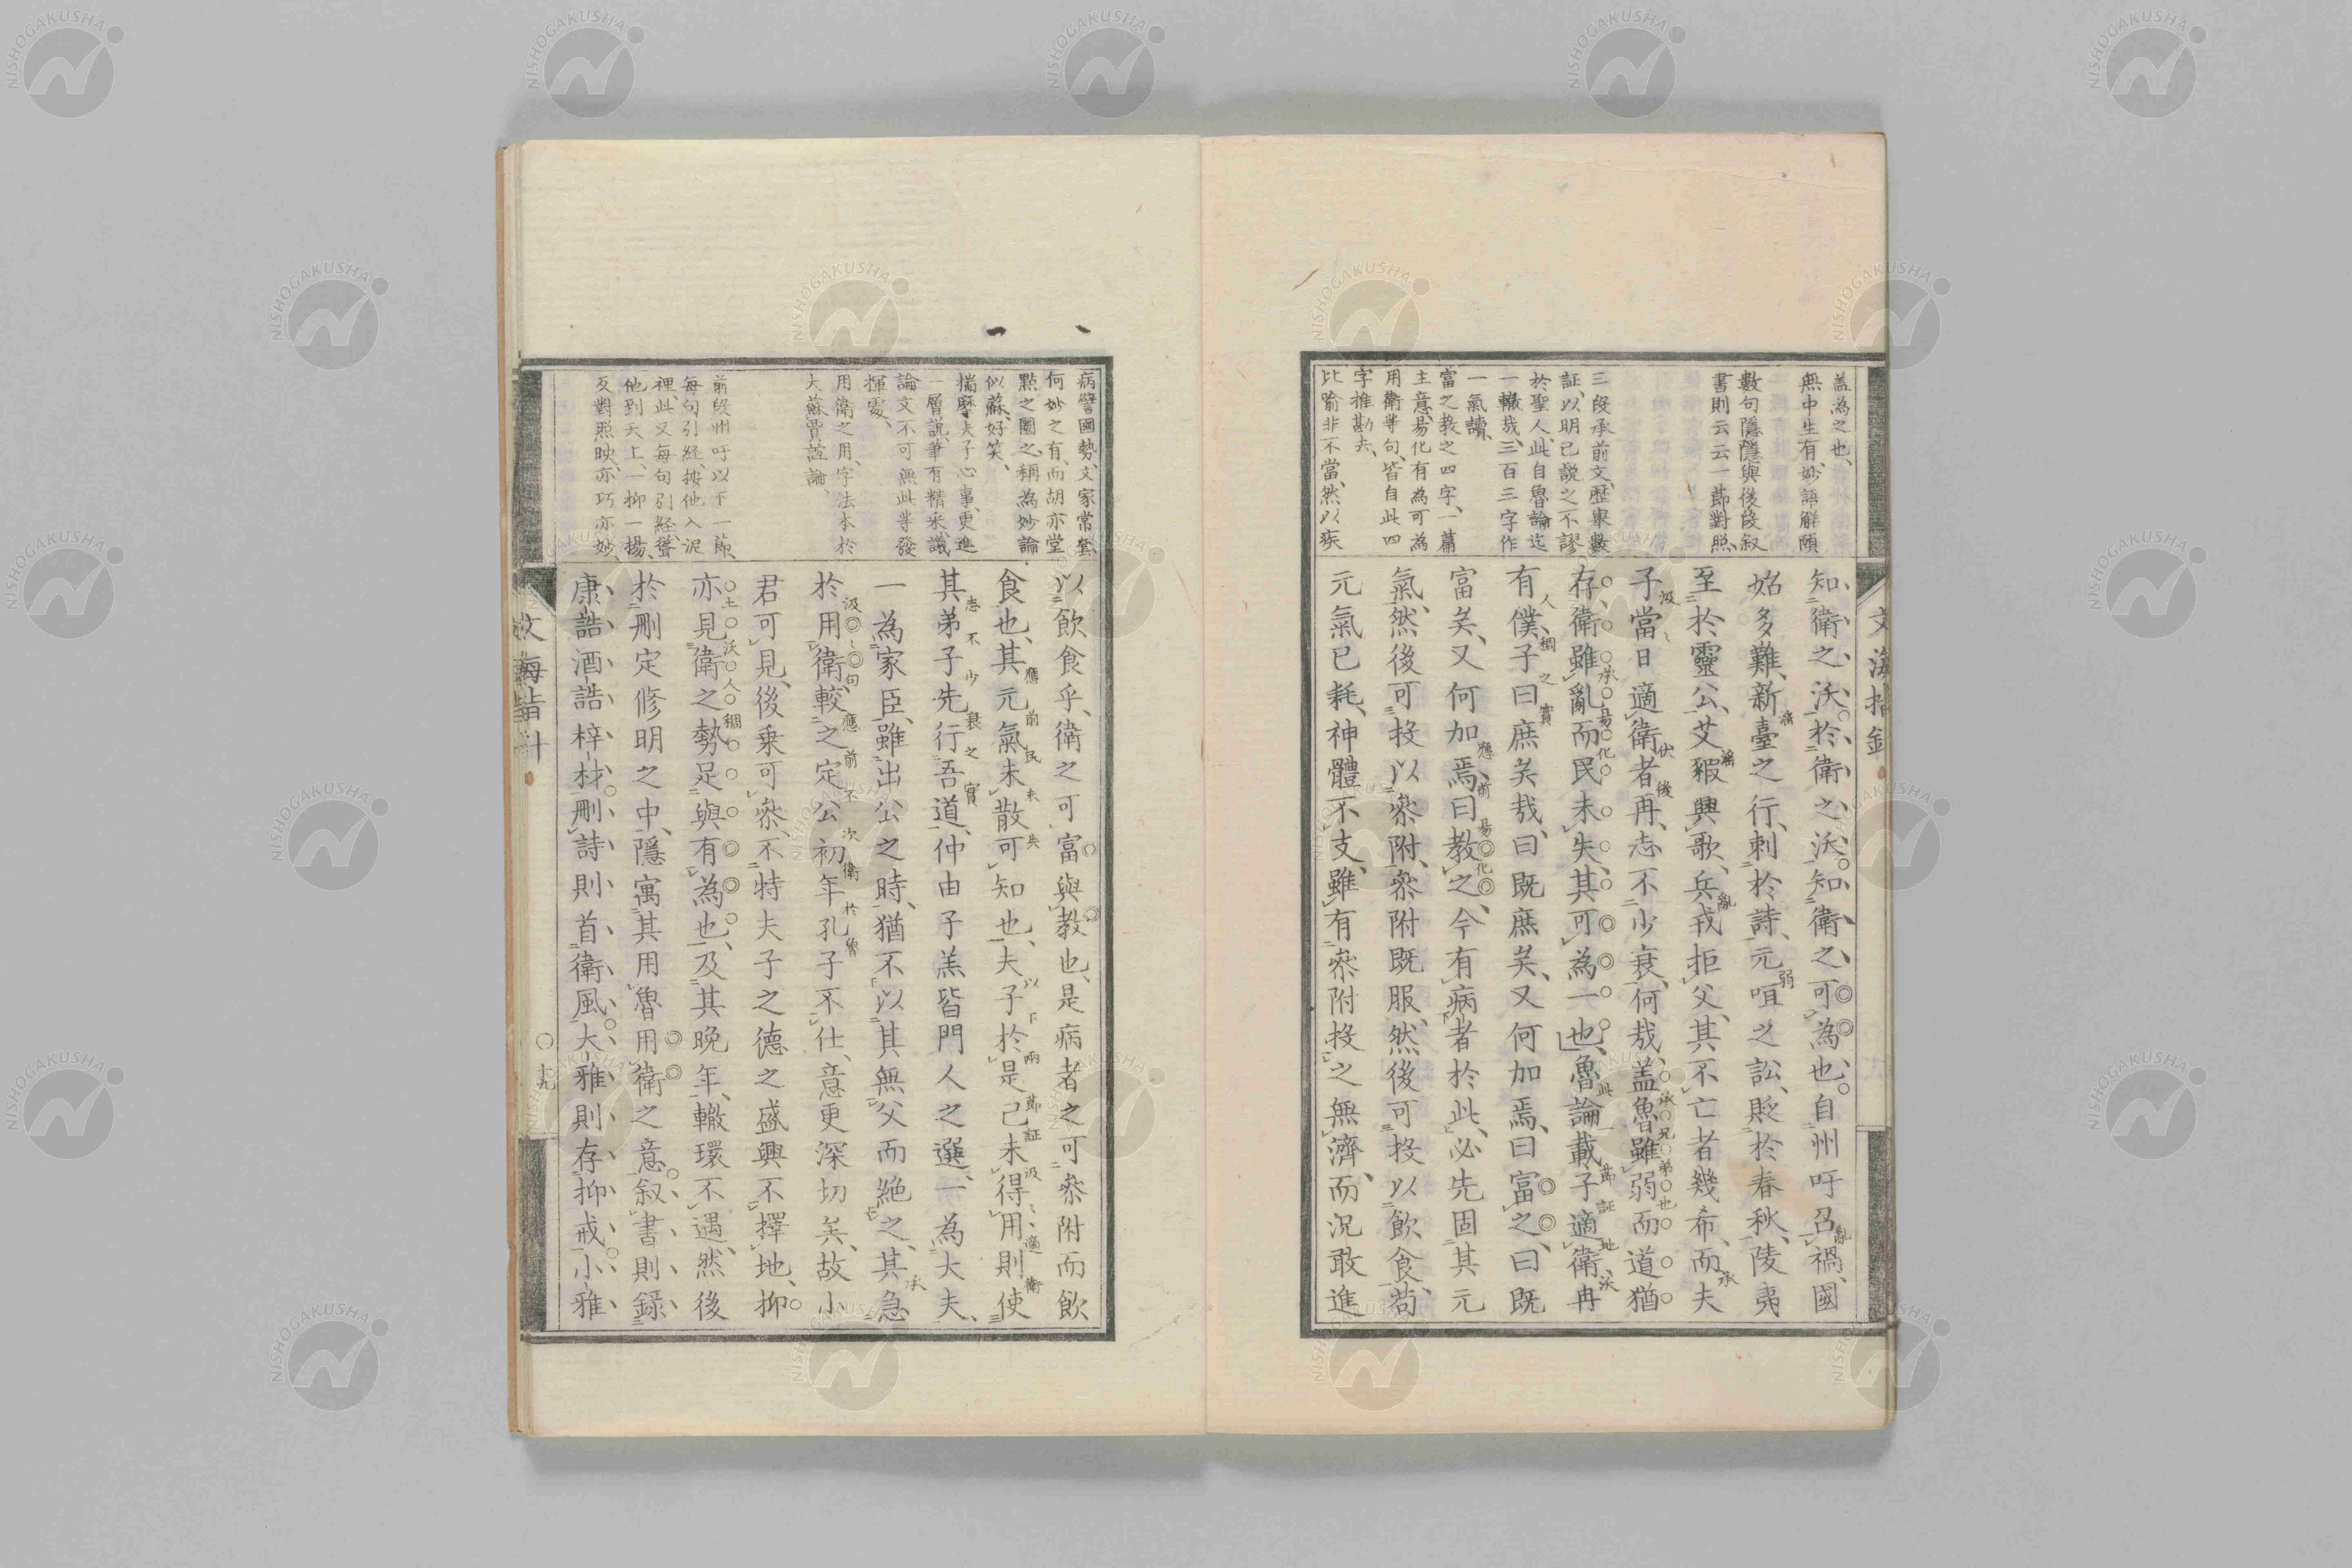 蓋為之也、
無中生有、妙語解頤
數句隱隱與後段叙
書則云云一節對照、
三段承前文、歷擧數
証、以明己說之不謬
於聖人、此自魯論迄
一轍哉、三百三字作
一氣讀、
富之教之四字、一篇
主意、易化有為可為
用衛等句、皆自此四
字推勘去、
比喻非不當、然以疾
知衛之沃、於衛之沃、知衛之可為也。自州吁召禍、國
始多難、新臺之行、刺於詩、元咺之訟、貶於春秋、陵夷
至於靈公、艾豭興歌、兵戎拒父、其不亡者幾希、而夫
子當日適衛者再、志不少衰、何哉、蓋魯雖弱而道猶
存、衛雖亂而民未失、其可為一也、魯論載子適衛冉
有僕、子曰庶矣哉、曰既庶矣、又何加焉、曰富之、曰既
富矣、又何加焉、曰教之、今有病者於此、必先固其元
氣、然後可投以參附、參附既服、然後可投以飲食、苟
元氣已耗、神體不支、雖有參附投之無濟、而況敢進
文海指針
病譬國勢、文家常套
何妙之有、而胡亦堂
點之圈之、稱為妙論
似蘇、好笑、
揣摩夫子心事、更進
一層說、筆有精采、議
論文不可無此等發
揮處、
用衛之用、字法本於
大蘇賈誼論、
前段州吁以下一節、
每句引経、按他入泥
裡、此又每句引経、聳
他到天上、一抑一揚、
反對照映、亦巧亦妙、
以飲食乎、衛之可富與教也、是病者之可參附而飲
食也、其元氣未散可知也、夫子於是己未得用則使
其弟子先行吾道、仲由子羔皆門人之選、一為大夫、
一為家臣、雖出公之時、猶不以其無父而絶之、其急
於用衛、較之定公初年孔子不仕、意更深切矣、故小
君可見、後乗可參、不特夫子之德之盛興不擇地、抑
亦見衛之勢足與有為也、及其晚年、轍環不遇、然後
於刪定修明之中、隱寓其用魯用衛之意、叙書則錄
康誥酒誥梓材、刪詩則首衛風、大雅則存抑戒、小雅
文海指針
〇十九
NISHOGAKUSHA